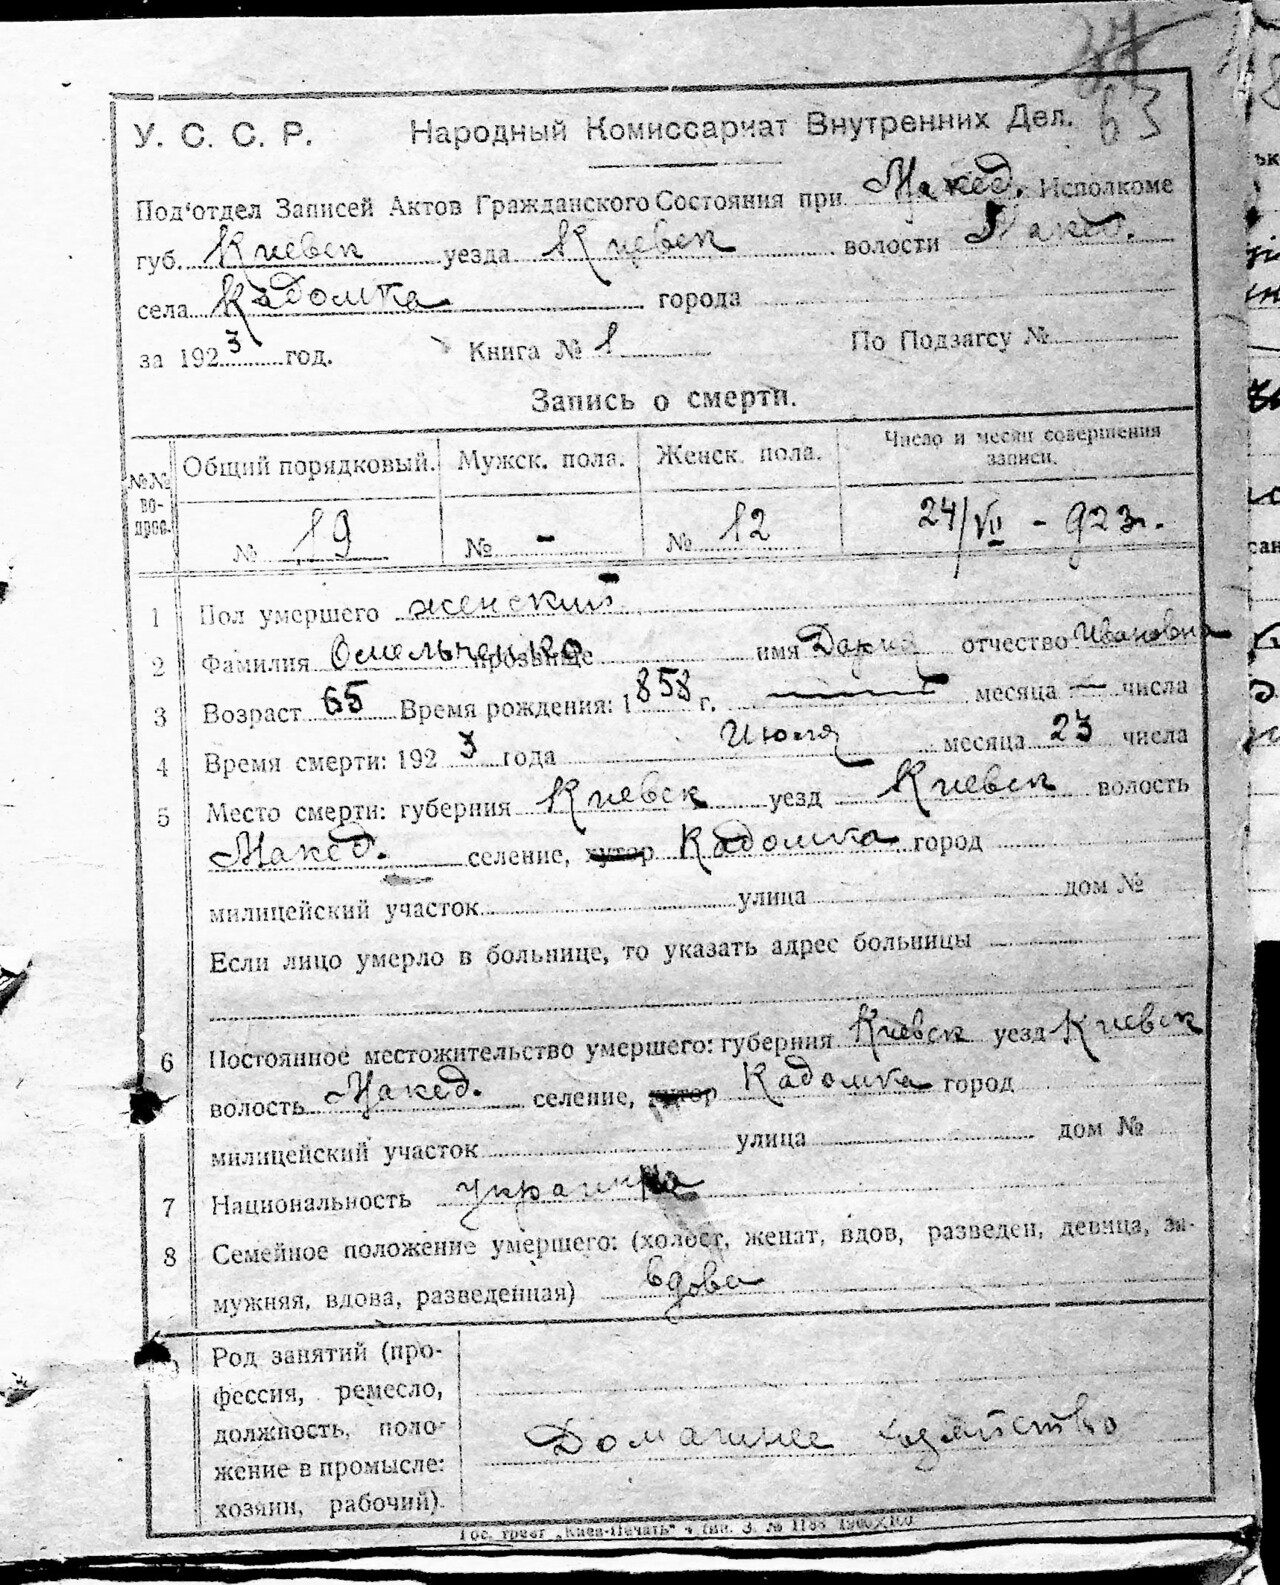 63
У. С. С. Р. Народный Комиссариат Внутренних Дел.
Под'отдел Записей Актов Гражданского Состояния при Макед. Исполкоме
губ. Киевск уезда Киевск волости Макед.
села Кадомка города
за 1923 год. Книга № 1 По Подзагсу №
Запись о смерти.
№№ вопрос. Общий порядковый. Мужск. пола. Женск. пола. Число и месяц совершения записи.
№ 19 № - № 12 24/VII - 923г.
1 Пол умершего женский
2 Фамилия Омельченко прозвище имя Дария отчество Ивановна
3 Возраст 65 Время рождения: 1858 г. — месяца — числа
4 Время смерти: 1923 года Июля месяца 23 числа
5 Место смерти: губерния Киевск уезд Киевск волость
Макед. селение, хутор Кадомка город
милицейский участок улица дом №
Если лицо умерло в больнице, то указать адрес больницы
6 Постоянное местожительство умершего: губерния Киевск уезд Киевск
волость Макед. селение, хутор Кадомка город
милицейский участок улица дом №
7 Национальность украинка
8 Семейное положение умершего: (холост, женат, вдов, разведен, девица, за-
мужняя, вдова, разведенная) вдова
Род занятий (про-
фессия, ремесло,
должность, поло-
жение в промысле:
хозяин, рабочий).
Домашнее хозяйство
Гос. трест „Киев-Печать" 4 тип. З. № 1188